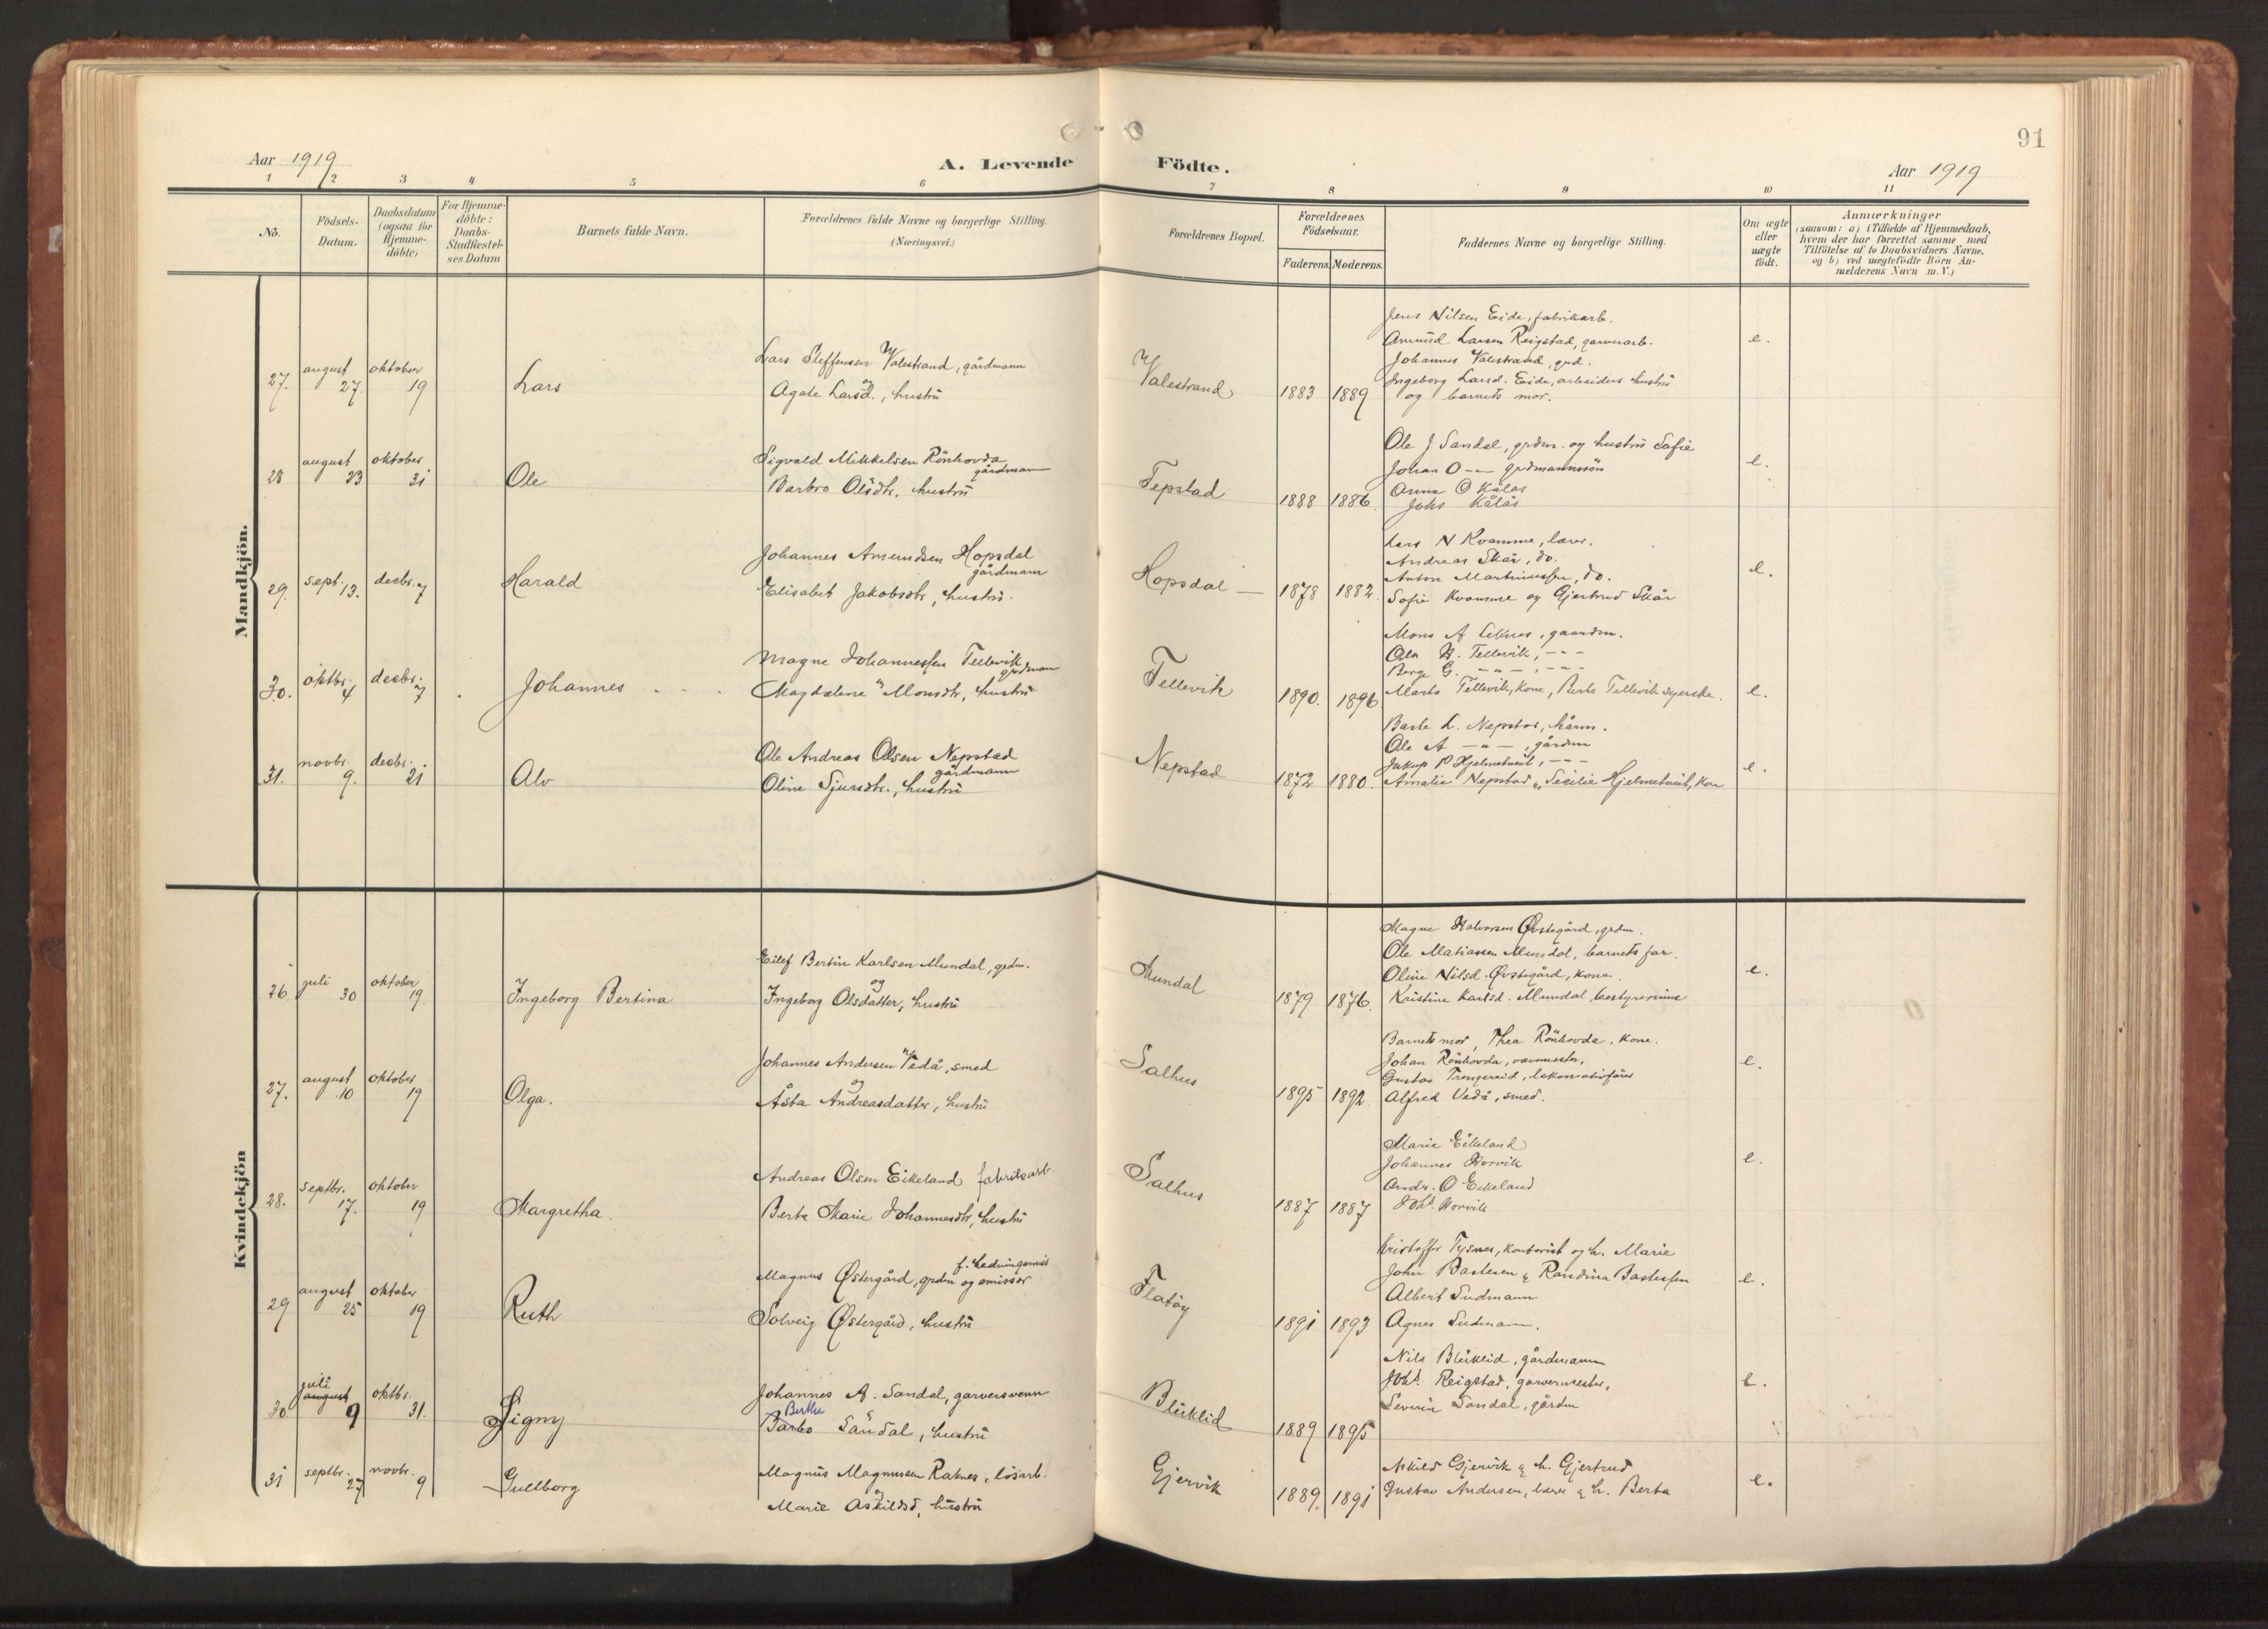 91
Aar 1919
A. Levende Födte.
Aar 1919
1 2 3 4 5 6 7 8 9 10 11
No.
Födsels-Datum.
Daabsdatum (ogsaa for Hjemme-döbte)
For Hjemme-döbte: Daabs-Stadfæstel-ses Datum
Barnets fulde Navn.
Forældrenes fulde Navne og borgerlige Stilling. (Næringsvei.)
Forældrenes Bopæl.
Forældrenes Födselsaar.
Faderens. Moderens.
Faddernes Navne og borgerlige Stilling.
Om ægte eller uægte födt.
Anmærkninger
(saasom: a) i Tilfælde af Hjemmedaab,
hvem der har forrettet samme med
Tilföielse af to Daabsvidners Navne.
og b) ved uægtefödte Börn An-
melderens Navn m. V.)
Mandkjön.
27. august 27. oktober 19 Lars
Lars Steffensen Valestrand, gårdmann
og
Agate Larsd., hustru
Valestrand 1883 1889
Jens Nilsen Eide, fabrikarb.
Amund Larsen Reigstad, garverarb.
Johannes Valestrand, grd.
Ingeborg Larsd. Eide, arbeiders hustru
og barnets mor.
e.
28 august 23 oktober 31 Ole
Sigvald Mikkelsen Rönhovda
gårdmann
Barbro Olsdtr. hustru
Tepstad 1888 1886.
Ole J Sandal, grdm. og hustru Sofie
Johan O -"- grdmannssön
Anna O Kålås
Johs Kålås
e.
29. sept. 13. decbr. 7 Harald
Johannes Amundsen Hopsdal
gårdmann
Elisabet Jakobsdtr, hustru.
Hopsdal 1878 1882.
Lars N Kvamme, lærer.
Andreas Skår, do.
Anton Martinussen, do.
Sofie Kvamme og Gjertrud Skår
e.
30. oktbr. 4 decbr. 7 Johannes
Magne Johannessen Tellevik
grdman
Magdalene Monsdtr, hustru
Tellevik 1890. 1896
Mons A Leknes, gaardm.
Ole H. Tellevik, -"-
Berge G. -"- , -"-
Marta Tellevik, kone, Berta Tellevik syerske.
e.
31. novbr. 9. decbr. 21 Alv
Ole Andreas Olsen Nepstad
gårdmann
Oline Sjursdtr., hustru
Nepstad 1872 1880.
Ole A -"- , gårdm
Jakop P Hjelmtveit, -"-
Amalie Nepstad & Secilie Hjelmetveit, kon
e.
Kvindekjön
26 juli 30 oktober 19. Ingeborg Bertina
Eilef Bertin Karlsen Mundal, grdm.
og
Ingeborg Olsdatter, hustru
Mundal 1879 1876.
Magne Halvorsen Øvstegård, grdm.
Ole Matiassen Mundal, barnets far.
Oline Nilsd. Øvstegård, kone.
Kristine Karlsd. Mundal, bestyrerinne
e.
27. august 10 oktober 19 Olga.
Johannes Andersen Vedå, smed
og
Åsta Andreasdatter, hustru
Salhus 1895 1892.
Barnets mor, Thea Rönhovda, kone.
Johan Rönhovda, vævmester,
Gustav Trengereid, lokomotivförer
Alfred Vedå, smed.
e.
28. septbr. 17. oktober 19 Margretha.
Andreas Olsen Eikeland fabriksarb.
Berta Marie Johannesdtr, hustru
Salhus 1887 1887
Marie Eikeland
Johannes Horvik
Andr. O Eikeland
Joh! Horvik
e.
29 august 25 oktober 19 Ruth
Magnus Østergård, grdm og emissær
Solveig Østergård, hustru
Flatöy 1891 1893
Kristoffer Tysnes, kontorist og h. Marie
John Bastesen & Randina Bastessen
Albert Sudmann
Agnes Sudmann.
e.
30. juli august 9 oktbr. 31. Signy
Johannes A. Sandal, garversvenn
Berthe
Barbo Sandal, hustru
Blukleid 1889 1895
Nils Blukleid, gårdmann
Joh! Reigstad, garvermester,
Severin Sandal, gårdm
e.
31 septbr. 27 novbr. 9 Gullborg
Magnus Magnussen Raknes, lösarb.
og
Marie Askildsd, hustru
Gjervik 1889. 1891
Askild Gjervik & h. Gjertrud
Gustav Andersen, lærer & h. Berta
e.